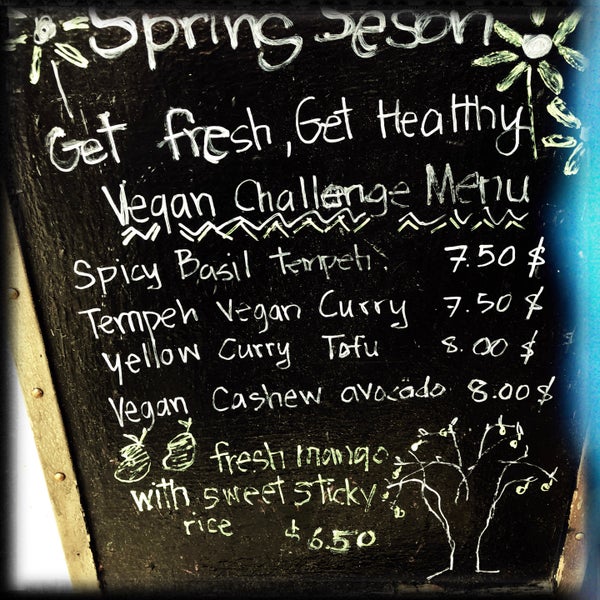 Spring Seson
Get fresh, Get Healthy
Vegan Challenge Menu
Spicy Basil tempeh. 7.50 $
Tempeh Vegan Curry 7.50 $
yellow Curry Tofu 8.00 $
Vegan Cashew avocado 8.00 $
fresh mango
with sweet sticky
rice $ 6.50